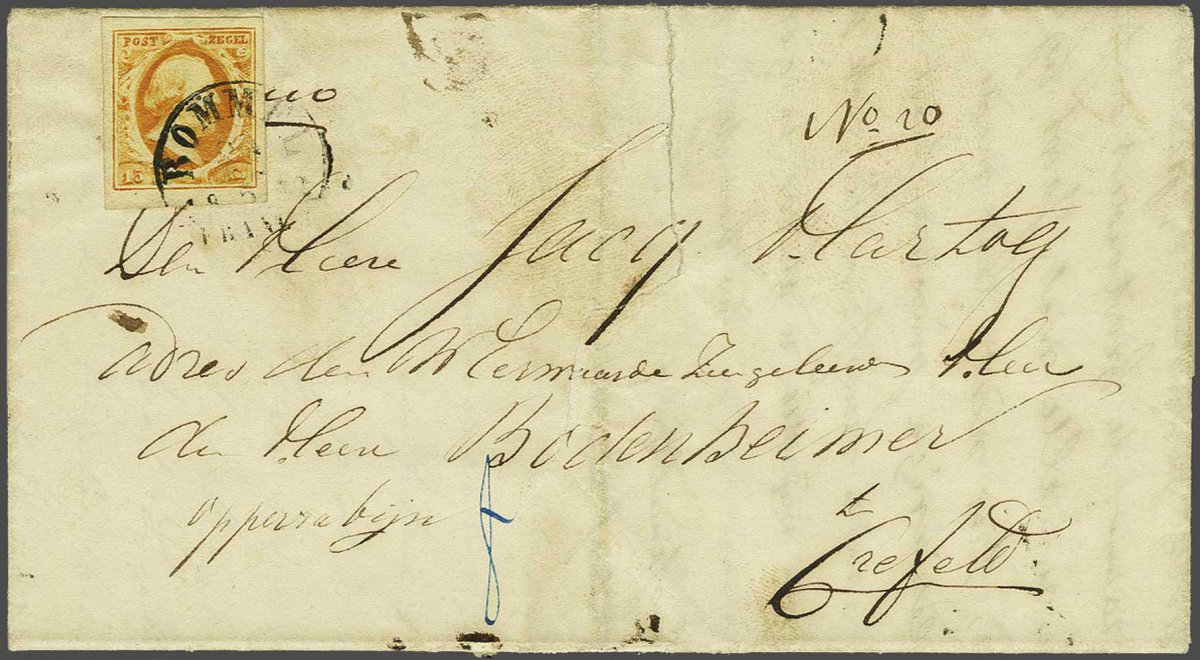 POST ZEGEL
15
BOMM
FRANCO
No 20
Den Heere Jacq Hartog
adres den Wel Eerwaarde Zeer geleerde Heer
den Heere Bodenheimer
opperrabijn
te
Crefeld